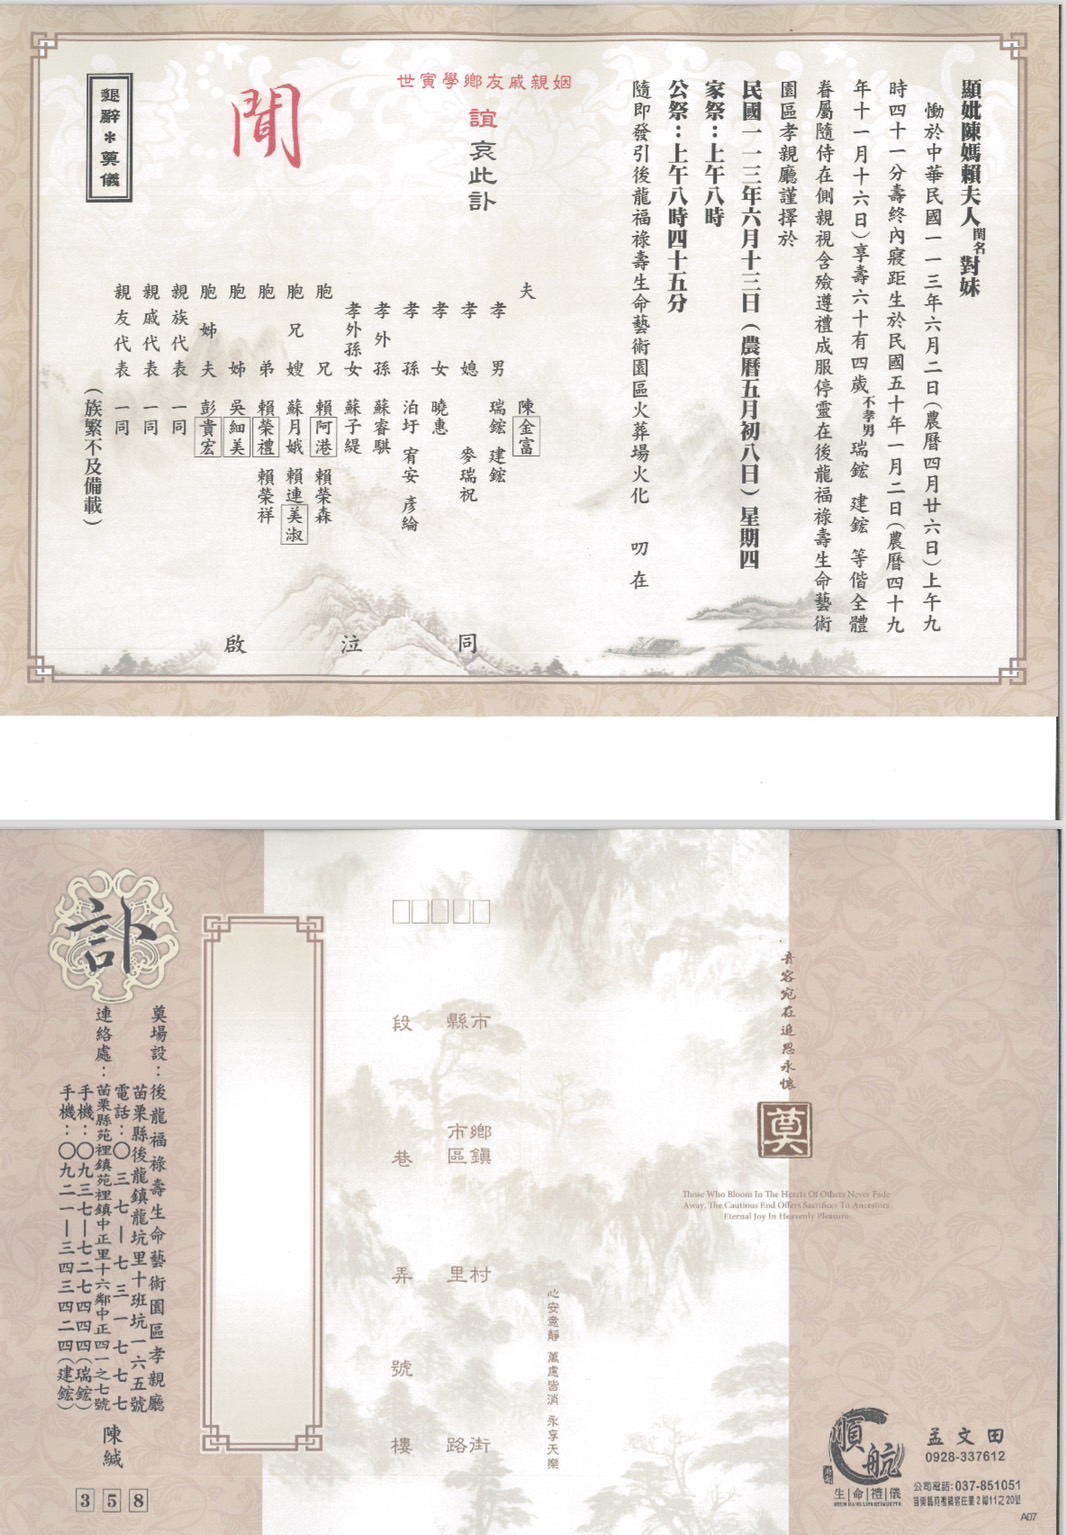 顯妣陳媽賴夫人閨名對妹
慟於中華民國一一三年六月二日(農曆四月廿六日)上午九
時四十一分壽終內寢距生於民國五十年一月二日(農曆四十九
年十一月十六日)享壽六十有四歲不孝男瑞鋐 建鋐 等偕全體
眷屬隨侍在側親視含殮遵禮成服停靈在後龍福祿壽生命藝術
園區孝親廳謹擇於
民國一一三年六月十三日(農曆五月初八日)星期四
家祭:上午八時
公祭:上午八時四十五分
隨即發引後龍福祿壽生命藝術園區火葬場火化 叨在
姻親戚友鄉學寅世
誼哀此訃
聞
懇辭*奠儀
夫 陳金富
孝男 瑞鋐 建鋐
孝媳 麥瑞祝
孝女 曉惠
孝孫 泊圩 宥安 彥綸
孝外孫 蘇睿騏
孝外孫女 蘇子緹
胞兄 賴阿港 賴榮森
胞兄嫂 蘇月娥 賴連美淑
胞弟 賴榮禮 賴榮祥
胞姊 吳細美
胞姊夫 彭貴宏
親族代表 一同
親戚代表 一同
親友代表 一同
(族繁不及備載)
同泣啟
音容宛在追思永懷
奠
Those Who Bloom In The Hearts Of Others Never Fade
Away, The Cautious End Offers Sacrifices To Ancestors
Eternal Joy In Heavenly Pleasure
心安意靜 萬慮皆消 永享天樂
市縣
鄉鎮
市區
村里
街路
段
巷
弄
號
樓
訃
奠場設:後龍福祿壽生命藝術園區孝親廳
苗栗縣後龍鎮龍坑里十班坑一六五號
電話:〇三七—七三一七七七
連絡處:苗栗縣苑裡鎮苑裡鎮中正里十六鄰中正四一之七號
手機:〇九三七—七二七四四四(瑞鋐)
手機:〇九二一—三四三四二四(建鋐)
陳緘
358
順航
生|命|禮|儀
孟文田
0928-337612
公司電話:037-851051
A07